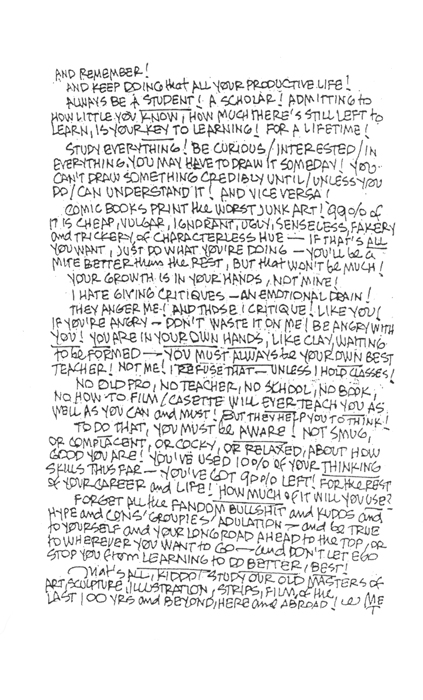 AND REMEMBER!
AND KEEP DOING that ALL YOUR PRODUCTIVE LIFE!
ALWAYS BE A STUDENT! A SCHOLAR! ADMITTING to
HOW LITTLE YOU KNOW, HOW MUCH THERE'S STILL LEFT to
LEARN, IS YOUR KEY TO LEARNING! FOR A LIFETIME!
STUDY EVERYTHING! BE CURIOUS/INTERESTED/IN
EVERYTHING. YOU MAY HAVE TO DRAW IT SOMEDAY! YOU
CAN'T DRAW SOMETHING CREDIBLY UNTIL/UNLESS YOU
DO/CAN UNDERSTAND IT! AND VICE VERSA!
COMIC BOOKS PRINT the WORST JUNK ART! 99% of
IT IS CHEAP, VULGAR, IGNORANT, UGLY, SENSELESS, FAKERY
and TRICKERY, OF CHARACTERLESS HUE — IF THAT'S ALL
YOU WANT, JUST DO WHAT YOU'RE DOING — YOU'LL BE A
MITE BETTER than the REST, BUT that WON'T BE MUCH!
YOUR GROWTH IS IN YOUR HANDS, NOT MINE!
I HATE GIVING CRITIQUES — AN EMOTIONAL DRAIN!
THEY ANGER ME! AND THOSE I CRITIQUE! LIKE YOU!
IF YOU'RE ANGRY — DON'T WASTE IT ON ME! BE ANGRY WITH
YOU! YOU ARE IN YOUR OWN HANDS, LIKE CLAY, WAITING
to be FORMED — YOU MUST ALWAYS be YOUR OWN BEST
TEACHER! NOT ME! I REFUSE THAT — UNLESS I HOLD CLASSES!
NO OLD PRO, NO TEACHER, NO SCHOOL, NO BOOK,
NO HOW TO FILM/CASETTE WILL EVER TEACH YOU AS
WELL AS YOU CAN and MUST! BUT THEY HELP YOU TO THINK!
TO DO THAT, YOU MUST BE AWARE! NOT SMUG,
OR COMPLACENT, OR COCKY, OR RELAXED, ABOUT HOW
GOOD YOU ARE! YOU'VE USED 10% OF YOUR THINKING
SKILLS THUS FAR — YOU'VE GOT 90% LEFT! FOR the REST
of YOUR CAREER and LIFE! HOW MUCH of IT WILL YOU USE?
FORGET ALL the FANDOM BULLSHIT and KUDOS and
HYPE and CONS' GROUPIES' ADULATION — and BE TRUE
to YOURSELF and YOUR LONG ROAD AHEAD to the TOP, or
to WHEREVER YOU WANT to GO — and DON'T LET EGO
STOP YOU from LEARNING to DO BETTER, BEST!
That's ALL, KIDDO! STUDY OUR OLD MASTERS of
ART, SCULPTURE, ILLUSTRATION, STRIPS, FILM, of the
LAST 100 YRS and BEYOND, HERE and ABROAD! ME